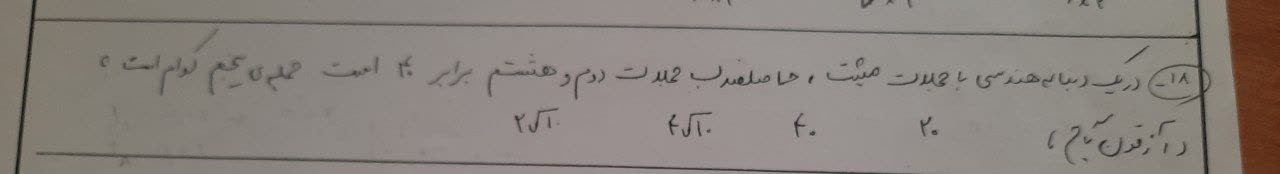 ۱۸- در یک دنباله هندسی با جملات مثبت، حاصلضرب جملات دوم و هشتم برابر ۴۰ است جمله‌ی پنجم کدام است؟
۲۰ ۴۰ ۴√۱۰ ۲√۱۰